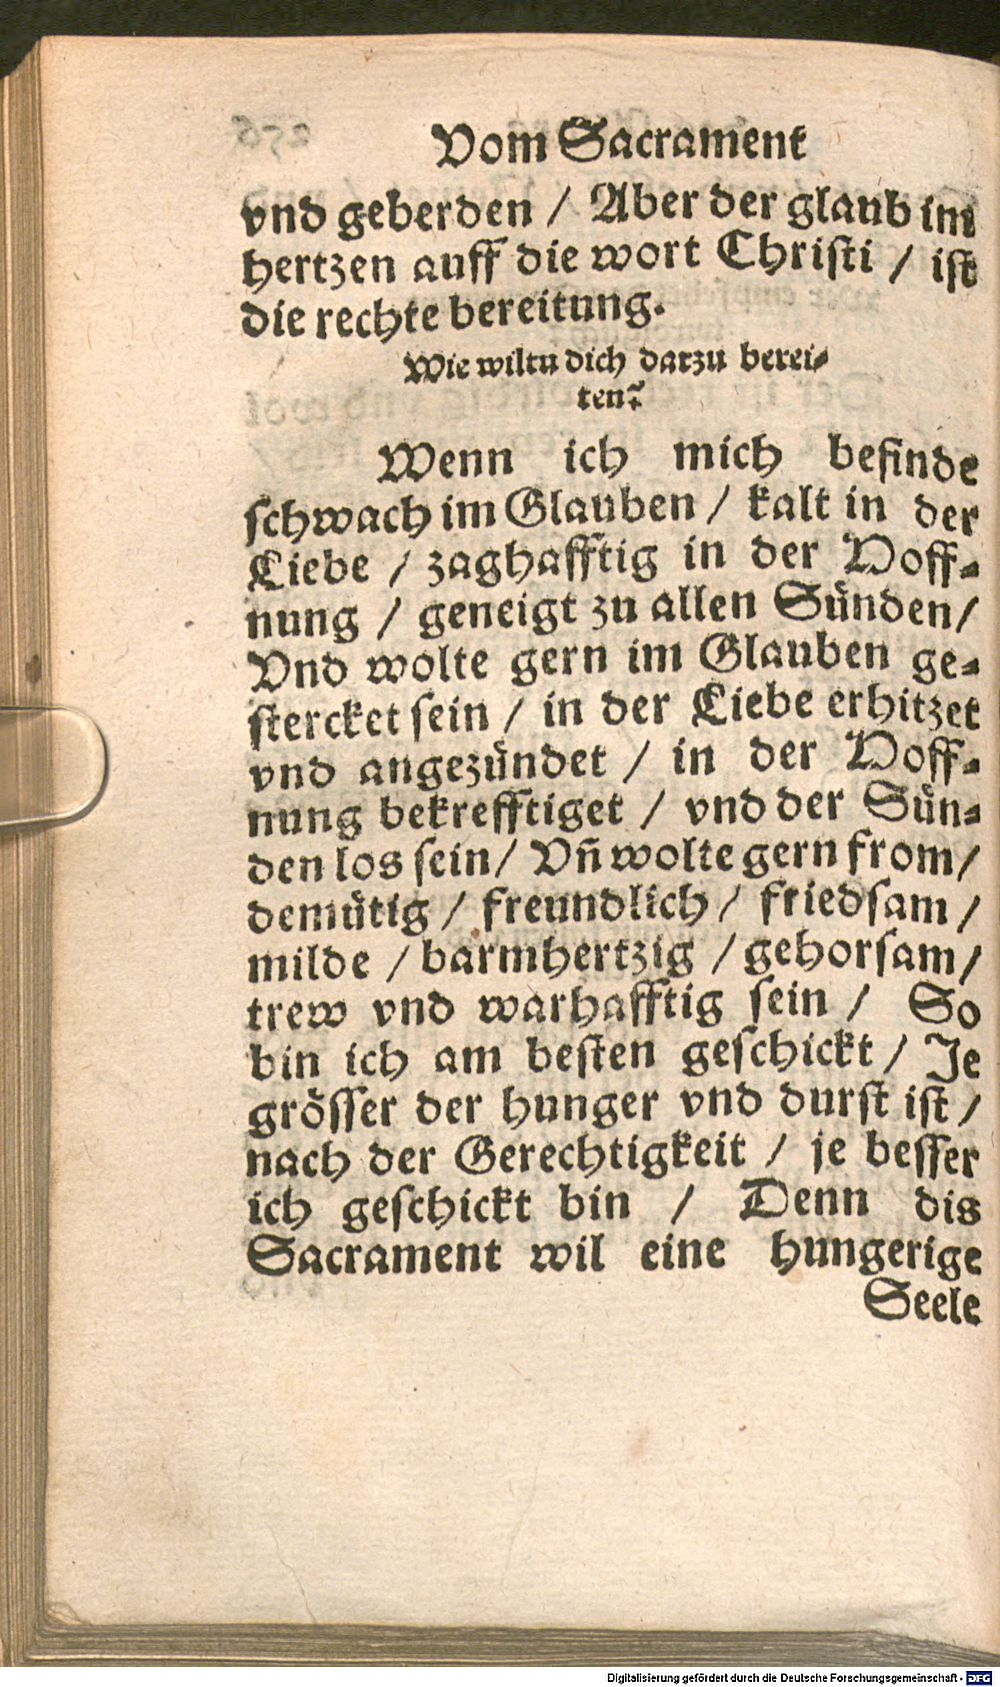 Vom Sacrament
vnd geberden / Aber der glaub im
hertzen auff die wort Christi / ist
die rechte bereitung.
Wie wiltu dich darzu berei-
ten?
Wenn ich mich befinde
schwach im Glauben / kalt in der
Liebe / zaghafftig in der Hoff-
nung / geneigt zu allen Sünden/
Vnd wolte gern im Glauben ge-
stercket sein / in der Liebe erhitzet
vnd angezündet / in der Hoff-
nung bekrefftiget / vnd der Sün-
den los sein/ Vñ wolte gern from/
demütig / freundlich / friedsam /
milde / barmhertzig / gehorsam/
trew vnd warhafftig sein / So
bin ich am besten geschickt / Je
grösser der hunger vnd durst ist /
nach der Gerechtigkeit / je besser
ich geschickt bin / Denn dis
Sacrament wil eine hungerige
Seele
Digitalisierung gefördert durch die Deutsche Forschungsgemeinschaft - DFG